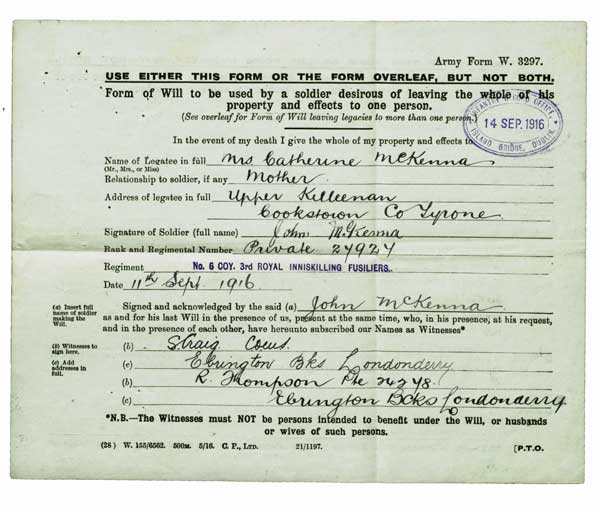 Army Form W. 3297.
USE EITHER THIS FORM OR THE FORM OVERLEAF, BUT NOT BOTH.
Form of Will to be used by a soldier desirous of leaving the whole of his
property and effects to one person.
(See overleaf for Form of Will leaving legacies to more than one person.)
INFANTRY RECORD OFFICE,
14 SEP. 1916
ISLAND BRIDGE, DUBLIN.
In the event of my death I give the whole of my property and effects to
Name of Legatee in full Mrs Catherine McKenna
(Mr., Mrs., or Miss)
Relationship to soldier, if any Mother
Address of legatee in full Upper Killeenan
Cookstown Co Tyrone
Signature of Soldier (full name) John McKenna
Rank and Regimental Number Private 27927
Regiment No. 6 COY. 3rd ROYAL INNISKILLING FUSILIERS.
Date 11th Sept. 1916
(a) Insert full name of soldier making the Will.
Signed and acknowledged by the said (a) John McKenna
as and for his last Will in the presence of us, present at the same time, who, in his presence, at his request,
and in the presence of each other, have hereunto subscribed our Names as Witnesses*
(b) Witnesses to sign here.
(b) S. Craig
(c) Add addresses in full.
(c) Ebrington Bks Londonderry
(b) R. Thompson Pte 24248
(c) Ebrington Bcks Londonderry
*N.B.—The Witnesses must NOT be persons intended to benefit under the Will, or husbands
or wives of such persons.
(28) W. 155/6562. 500m. 5/16. C. P., LTD. 21/1197. [P.T.O.